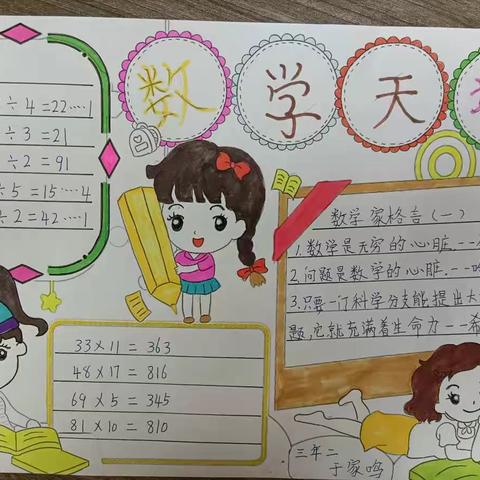 数 学 天
÷ 4 = 22……1
÷ 3 = 21
÷ 2 = 91
÷ 5 = 15……4
÷ 2 = 42……1
数学家格言(一)
1.数学是无穷的心脏.--
2.问题是数学的心脏.--
3.只要一门科学分支能提出大
题,它就充满着生命力--希
33 × 11 = 363
48 × 17 = 816
69 × 5 = 345
81 × 10 = 810
三年二
于家鸣